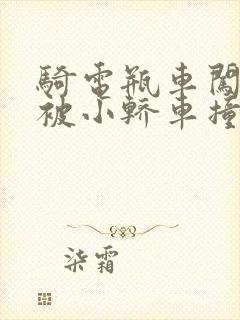 騎電瓶車闖
被小轎車撞
柒霜